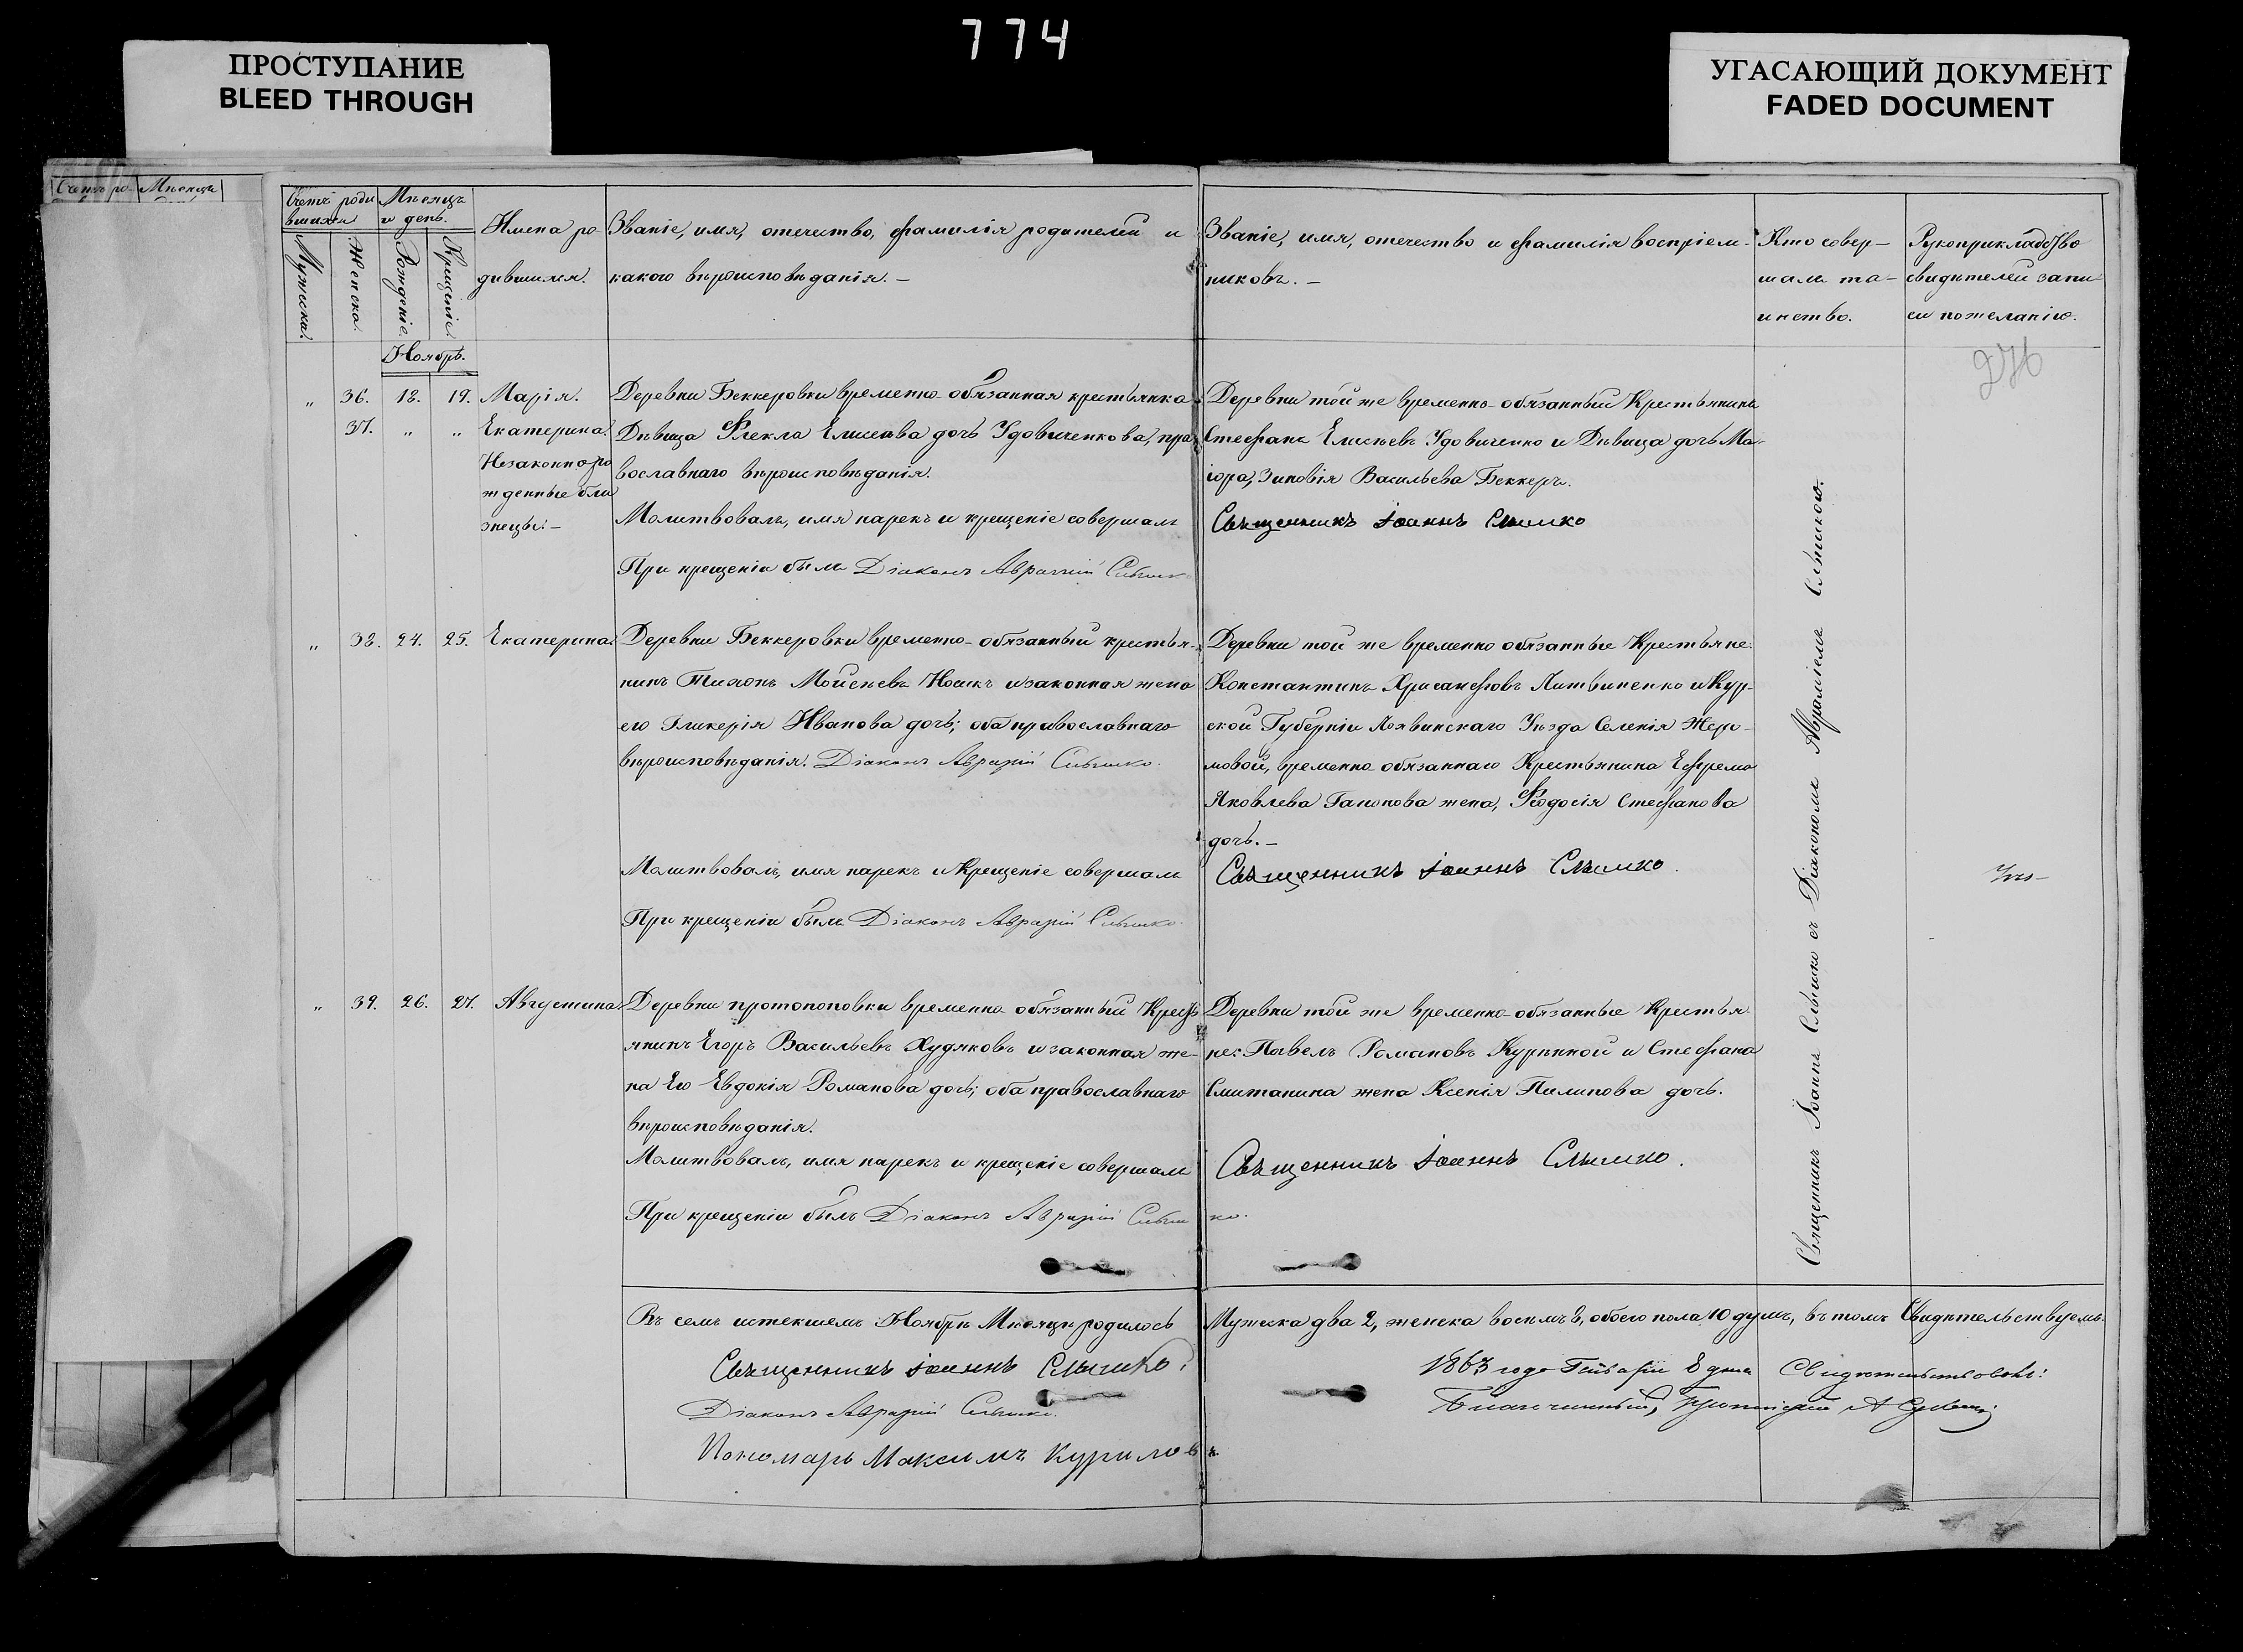 774
ПРОСТУПАНИЕ
BLEED THROUGH
УГАСАЮЩИЙ ДОКУМЕНТ
FADED DOCUMENT
Счетъ роди
вшихся
Мѣсяцъ
и день.
Мужеска.
Женска.
Рожденіе.
Крещеніе.
Имена ро-
дившихся.
Званіе, имя, отечество, фамилія родителей и
какого вѣроисповѣданія. –
Званіе, имя, отечество и фамилія воспріем-
никовъ. –
Кто совер-
шалъ та-
инство.
Рукоприкладство
свидѣтелей запи-
си по желанію.
Ноябрь.
„ 36. 18. 19. Марія.
37. „ „ Екатерина.
Незаконноро
жденные бли
знецы. –
Деревни Беккеровки временно-обязанная крестьянка
Дѣвица Фекла Елисеева дочь Удовиченкова, пра-
вославнаго вѣроисповѣданія.
Молитвовалъ, имя нарекъ и крещеніе совершалъ
При крещеніи былъ Діаконъ Слышко
Деревни той же временно-обязанный Крестьянинъ
Стефанъ Елисѣевъ Удовиченко и Дѣвица дочь Ма-
іора, Зиновія Васильева Беккеръ.
Священникъ Іоаннъ Слышко
„ 38. 24. 25. Екатерина.
Деревни Беккеровки временно-обязанный крестья-
нинъ Тихонъ Мойсеѣвъ Носикъ и законная жена
его Гликерія Иванова дочь; оба православнаго
вѣроисповѣданія. Діаконъ Слышко.
Молитвовалъ, имя нарекъ и Крещеніе совершалъ
При крещеніи былъ Діаконъ Слышко.
Деревни той же временно обязанные Крестьяне:
Константинъ Хрисанфовъ Литвиненко и Кур-
ской Губерніи Уѣзда Селенія
временно-обязаннаго Крестьянина Ефрема
Яковлева жена, Феодосія Стефанова
дочь. –
Священникъ Іоаннъ Слышко.
„ 39. 26. 27. Августина.
Деревни протопоповки временно-обязанный Кресть
янинъ Егоръ Васильевъ Худяковъ и законная же-
на Его Евдокія Романова дочь; оба православнаго
вѣроисповѣданія.
Молитвовалъ, имя нарекъ и крещеніе совершалъ
При крещеніи былъ Діаконъ Слышко.
Деревни той же временно-обязанные Крестья-
не: Павелъ Романовъ и Стефана
жена Ксенія Филипова дочь.
Священникъ Іоаннъ Слышко.
Священникъ Іоаннъ Слышко съ Діакономъ Авраміемъ Слышкою.
Въ семъ истекшемъ Ноябрѣ Мѣсяцѣ родилось Мужеска два 2, женска восемь 8, обоего пола 10 душъ, въ томъ Свидѣтельствуемъ.
Священникъ Іоаннъ Слышко.
Діаконъ Слышко.
Пономарь Максимъ Куриловъ.
1863 года Генваря 8 дня Свидѣтельствовалъ:
Благочинный, Протоіерей